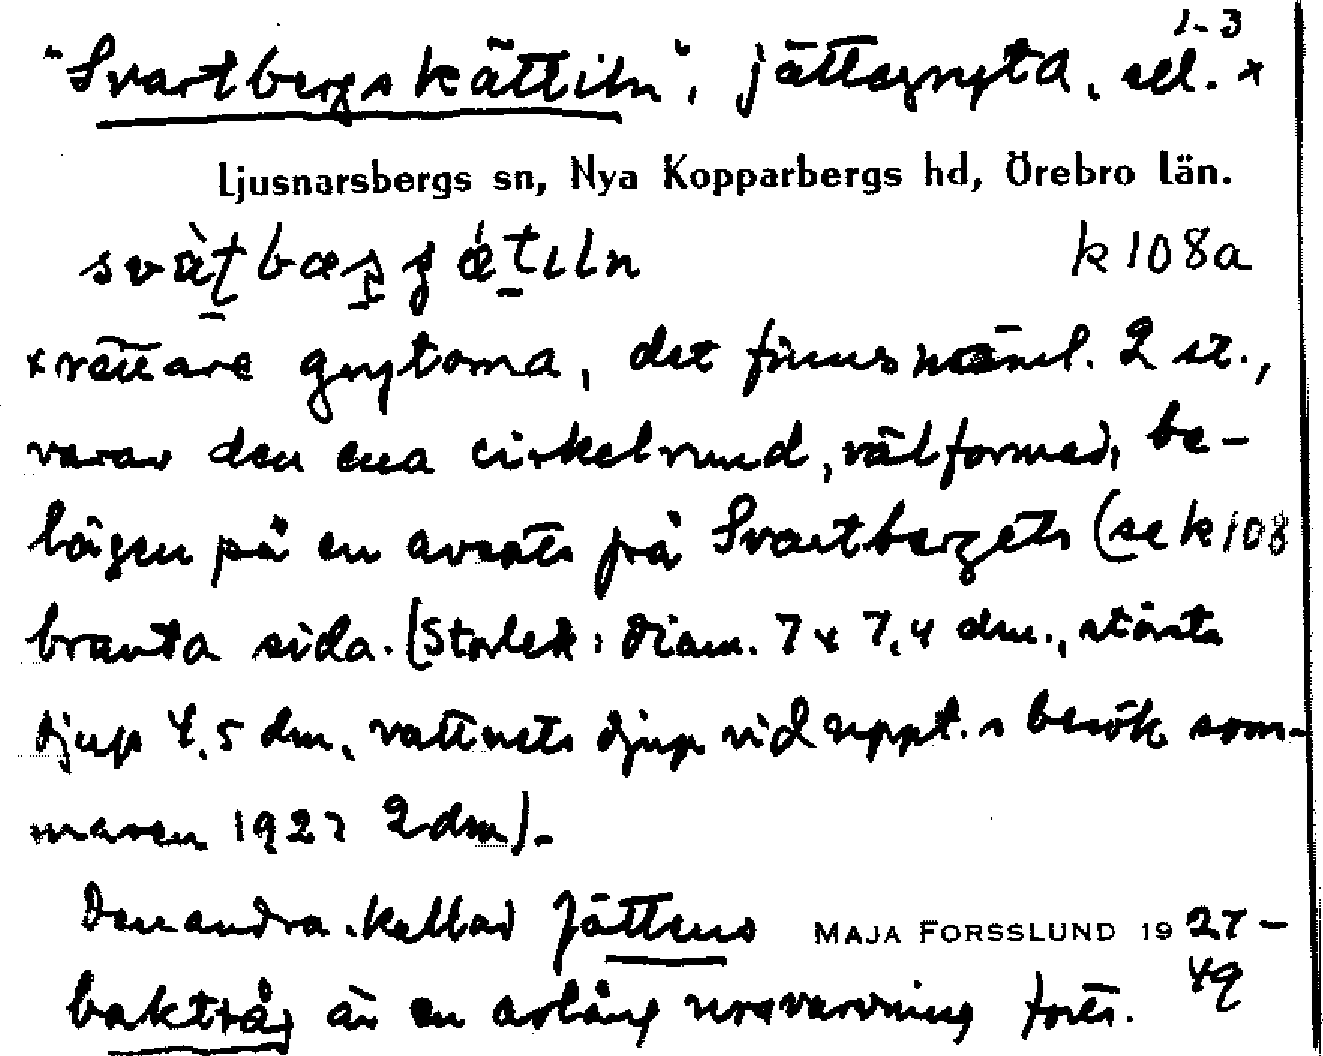 1-3
"Svartbergskättiln", jättegryta, ell. x
Ljusnarsbergs sn, Nya Kopparbergs hd, Örebro län.
k 108a
x rättare grytorna, det finns näml. 2 st.,
varav den ena cirkelrund, välformad, be-
lägen på en avsats på Svartbergets (se k 108
branta sida. (Storlek: diam. 7 x 7,4 dm., största
djup 4,5 dm, vattnets djup vid uppt.s besök som-
maren 1927 2 dm).
Den andra kallad Jättens
MAJA FORSSLUND 1927-
49
baktråg är en avlång ursvarvning